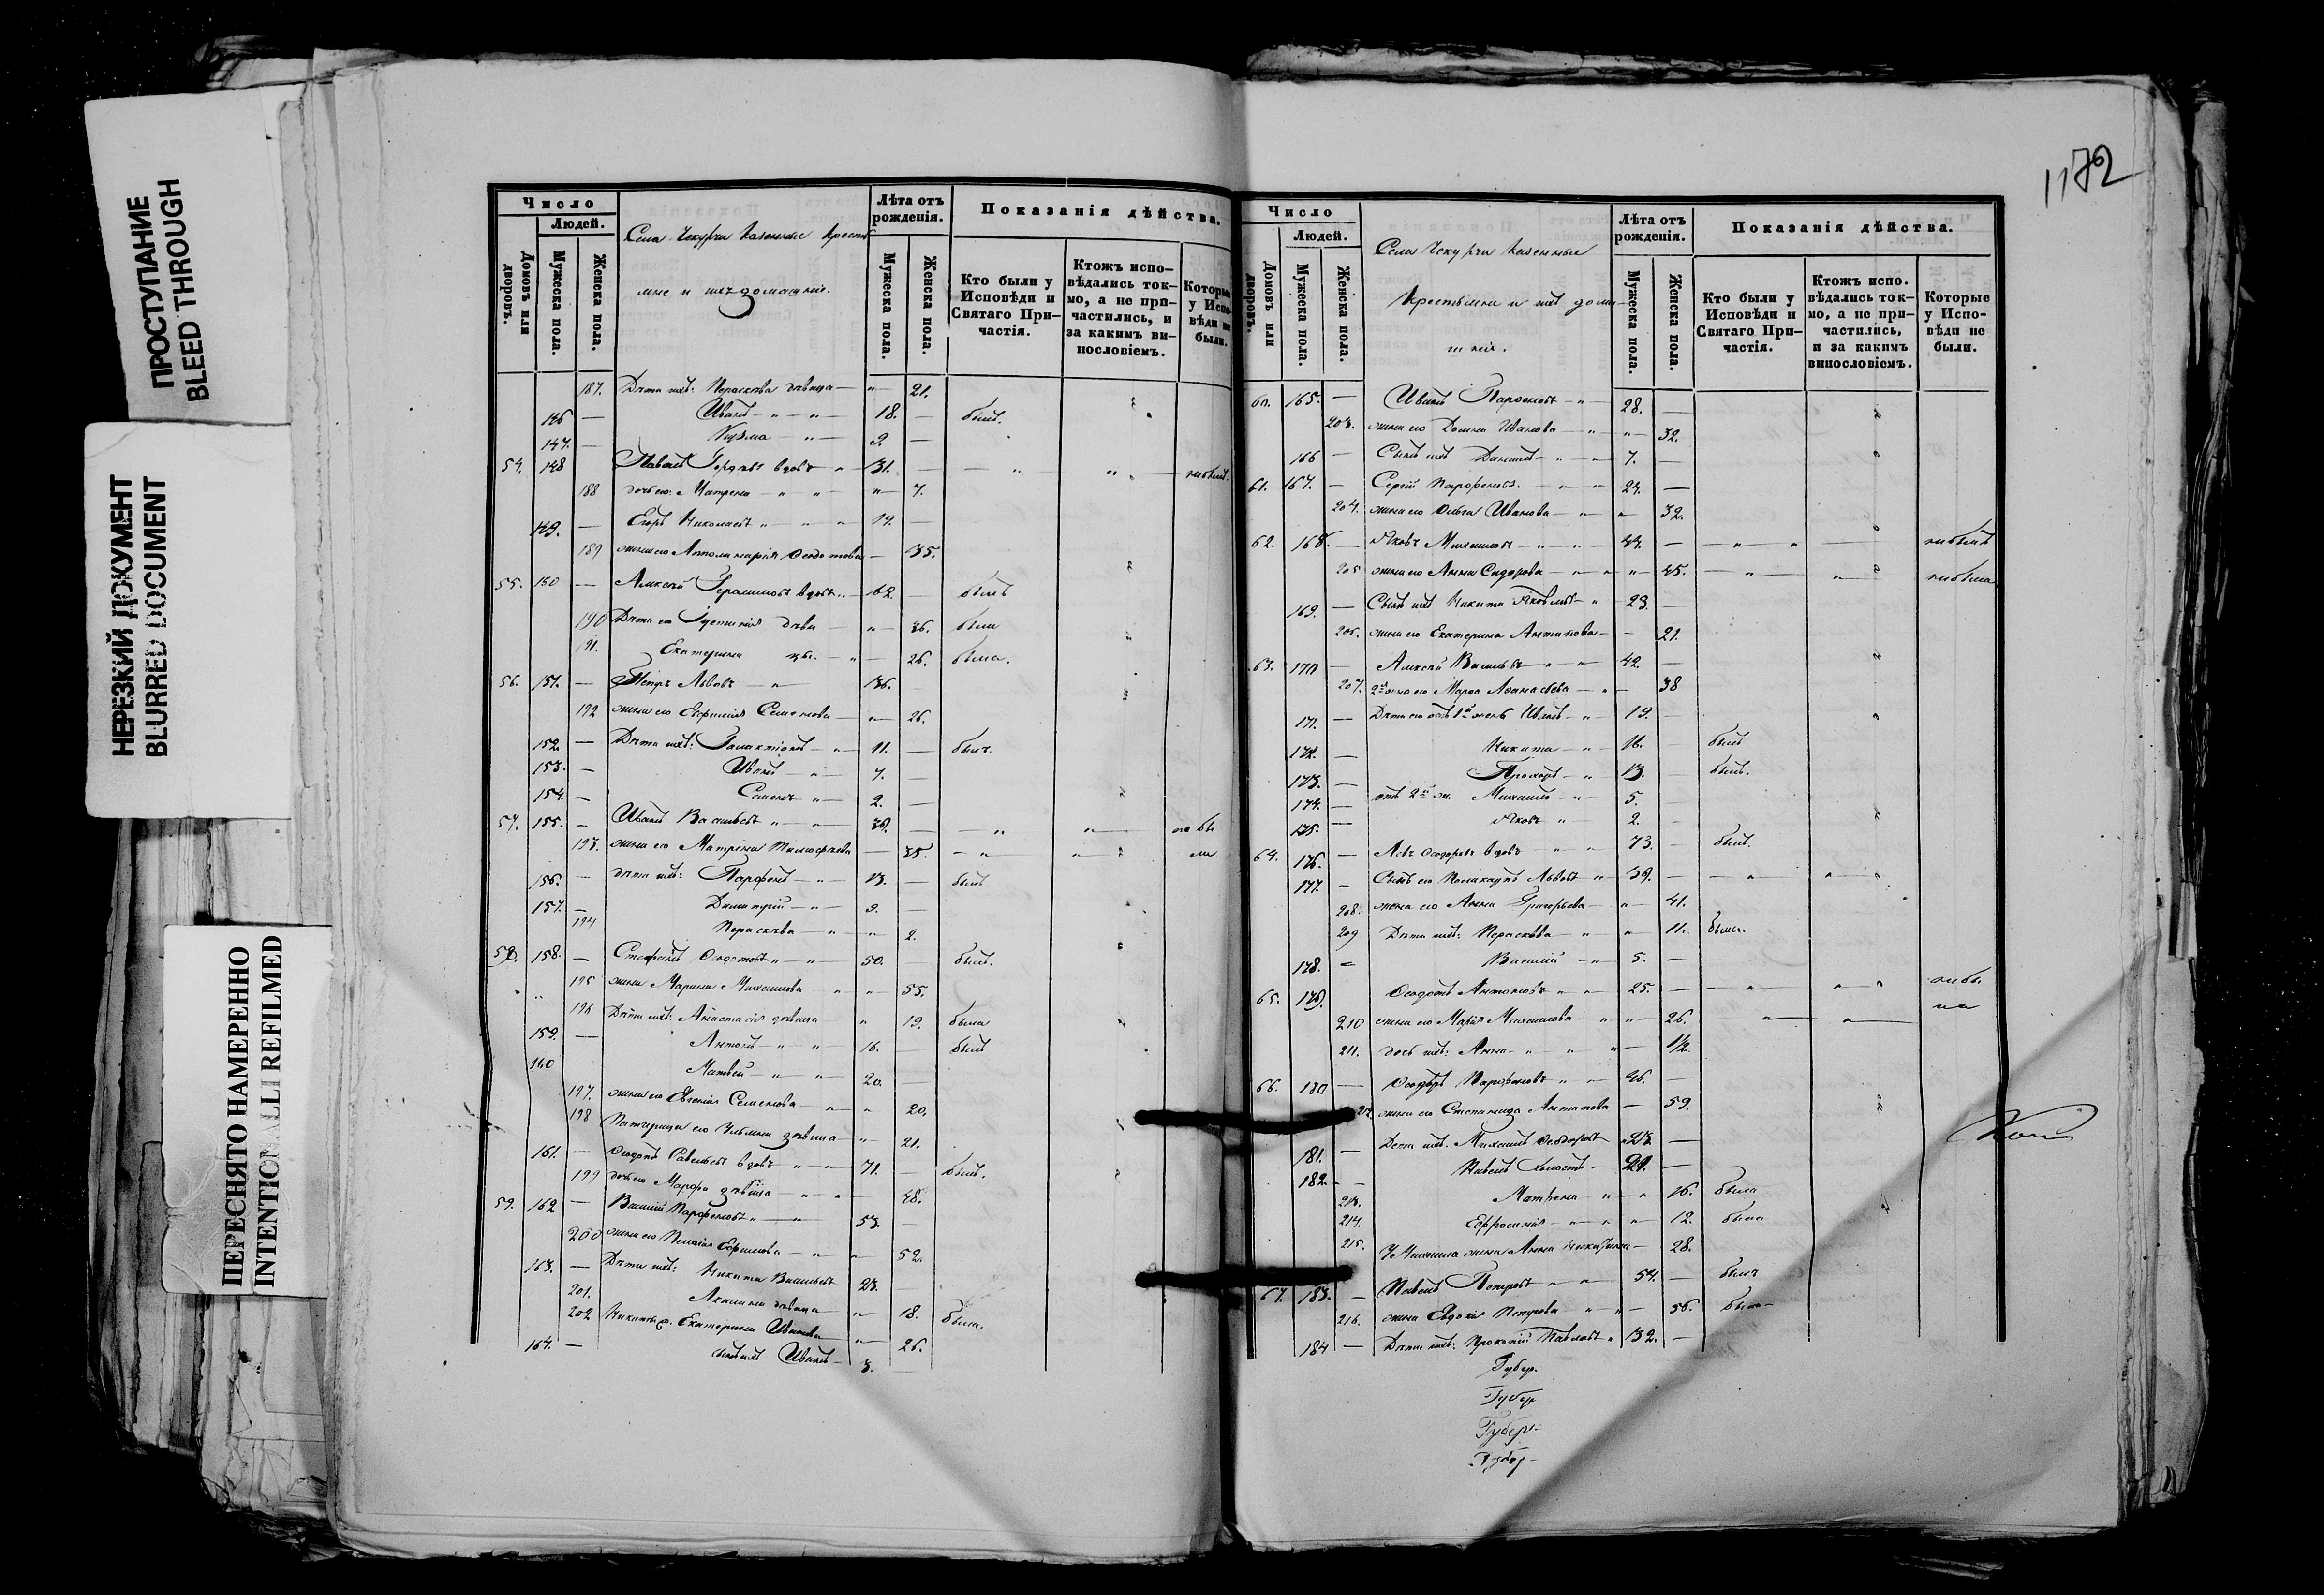 ПРОСТУПАНИЕ
BLEED THROUGH
НЕРЕЗКИЙ ДОКУМЕНТ
BLURRED DOCUMENT
ПЕРЕСНЯТО НАМЕРЕННО
INTENTIONALLI REFILMED
Число
Людей.
Домовъ или дворовъ.
Мужеска пола.
Женска пола.
Села Чекурчи казенные крестья
мне и ихъ домашніе.
Лѣта отъ рожденія.
Мужеска пола.
Женска пола.
Показанія дѣйства.
Кто были у Исповѣди и Святаго Причастія.
Ктожъ исповѣдались токмо, а не причастились, и за какимъ винословіемъ.
Которые у Исповѣди не были.
187. Дѣти ихъ: Параскева дѣвица — " 21.
146 — Иванъ — " — " — 18. — былъ.
147. — Кузма — " — 9. —
54. 148 Павелъ Гордѣевъ вдовъ " 31. — — " " — небылъ.
188 дочь его Матрена — " " — " 7.
149. — Егоръ Николаевъ " " " 19. —
189 жена его Апполинарія Ѳедотова — 35.
55. 150 — Алексѣй Герасимовъ вдовъ " — 62. — былъ
190 Дѣти его Іустинія дѣвка — " 36. были
191. Екатерина — " — 26. была.
56. 151. — Петръ Львовъ — " — 36. —
192 жена его Евфимія Семенова — " 26.
152. — Дѣти ихъ: Галактіонъ — " 11. — былъ.
153. — Иванъ — " 7. —
154. — Семенъ " — 2. —
57. 155. — Иванъ Васильевъ " — " 39. — — " " — не бы
193. жена его Матрена Тимофеева — 35. — " " ли
156. — дѣти ихъ: Парфенъ — " — 13. — былъ
157. — Димитрій — " — 9. —
194 Параскева — " — " 2.
58. 158. — Стефанъ Ѳедотовъ " — " 50. — былъ.
195 жена Марина Михаилова " " 55.
196 Дѣти ихъ: Анастасія дѣвица " 19. была
159. — Антонъ — " " — 16. — былъ
160 Матвей — " — " 20. —
197. жена его Евгенія Семенова — " " 20.
198 Патчерица его Ульяна дѣвица — " 21.
161. — Ѳедотъ Савельевъ вдовъ " — " 71. — былъ.
199 дочь его Марфа дѣвица — " — " 48.
59. 162 — Василій Парфеновъ " — " 53. —
200 жена его Пелагія Ефимова — " " 52.
163. — Дѣти ихъ: Никита Васильевъ 23. —
201. Акилина дѣвица " 18. была.
202 Никиты ж. Екатерина Иванова " 26.
164. — сынъ ихъ Иванъ — 3. —
1172
Число
Людей.
Домовъ или дворовъ.
Мужеска пола.
Женска пола.
Села Чекурчи казенные
крестьяне и ихъ дома-
шніе.
Лѣта отъ рожденія.
Мужеска пола.
Женска пола.
Показанія дѣйства.
Кто были у Исповѣди и Святаго Причастія.
Ктожъ испо. вѣдались токмо, а не причастились, и за какимъ винословіемъ.
Которые у Исповѣди не были.
60. 165. — Иванъ Парфеновъ — " 28. —
203. жена его Домна Иванова — " " — 32.
166 — Сынъ ихъ Даніилъ — " " 7. —
61. 167. — Сергій Парфеновъ. — " " 24. —
204. жена его Ольга Иванова — " " 32.
62. 168. — Яковъ Михаиловъ — " " — 44. — — " " — небылъ
205 жена его Анна Сидорова — " " " — 45. — " — " — небыла
169. — Сынъ ихъ Никита Яковлевъ — " 23. —
206. жена его Екатерина Антипова — — 21.
63. 170 — Алексѣй Васильевъ — " " 42. —
207. 2я жена его Марфа Афанасьева — " — 38
171. — Дѣти его отъ 1й жены Иванъ — " 19. —
172. — Никита — " 16. — былъ
173. — Прохоръ — " 13. — былъ.
174. — отъ 2й ж. Михаилъ — " 5. —
175. — Яковъ " 2. —
64. 176. — Левъ Ѳедоровъ вдовъ " " 73. — былъ.
177. — Сынъ его Поликарпъ Львовъ " 39. — — " " "
208. жена его Анна Григорьева — " 41.
209 Дѣти ихъ: Параскева — " " 11. была.
178. — Василій — " 5. —
65. 179. Ѳедотъ Антоновъ " " 25. — — " — " небы
210 жена его Марія Михаилова — " " — 26. " — " — ла
211. дочь ихъ: Анна — " " " — 1/2.
66. 180 — Ѳедоръ Парфеновъ " " 46. —
212. жена его Степанида Антипова — 59.
181. — Дети ихъ: Михаилъ Ѳедоровъ 23. —
182. — Павелъ холостъ — 21. —
213. Матрена — " — " 16. была
214. Ефросинія — " " " 12. была
215. У Михаила жена Анна Никитина — 28.
67. 183. — Павелъ Петровъ — " " 54. — былъ
216. жена Евдокія Петрова " " — 56. была
184 — Дѣти ихъ: Прокопій Павловъ " 32. —
Губер.
Губер
Губер.
Губер